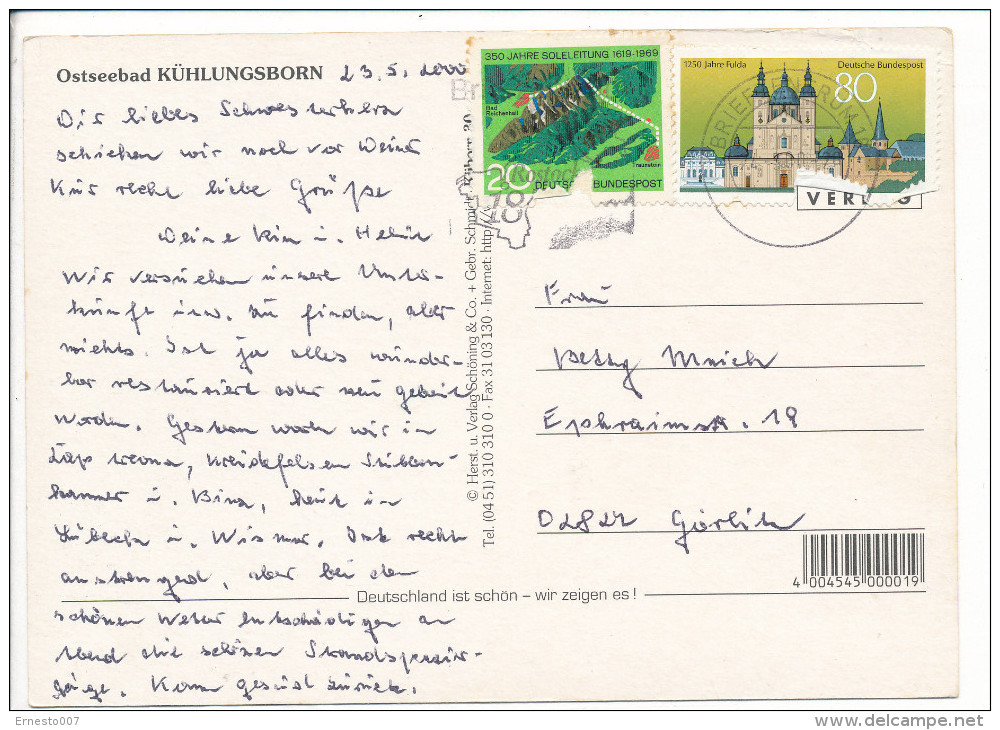 Ostseebad KÜHLUNGSBORN 23.5.2000
Dir liebes Schwesterherz
schicken wir noch vor Deiner
Kur recht liebe Grüße
Deine u.
Wir versuchen unsere Unter-
künfte usw. zu finden, aber
nichts. Ist ja alles wunder-
bar restauriert oder neu gebaut
worden. Gestern waren wir in
Kreidefelsen Stubben-
kammer u. Binz, heute in
Lübeck u. Wismar. Ist recht
anstrengend, aber bei dem
schönen Wetter entschädigen am
Abend die schönen Strandspazier-
gänge. Komm gesund zurück.
350 JAHRE SOLELEITUNG 1619-1969
Bad
Reichenhall
Traunstein
20 DEUTSCHE BUNDESPOST
Rostock
18
1250 Jahre Fulda Deutsche Bundespost
80
BRIEFZENTRUM 18
VERLAG
Frau
Betty
Ephraimstr. 19
02827 Görlitz
© Herst. u. Verlag Schöning & Co. + Gebr. Schmidt,
Tel. (04 51) 310 310 0 · Fax 31 03 130 · Internet: http://
4 004545 000019
Deutschland ist schön – wir zeigen es !
Ernesto007
delcampe.net